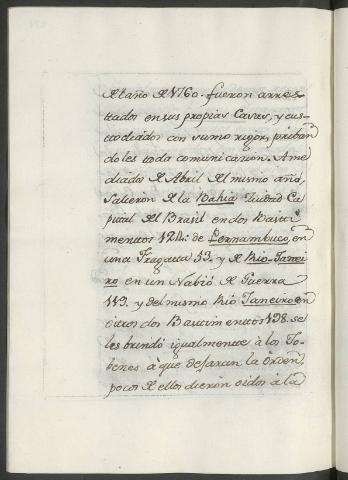 del año de 1760. fueron arres-
trados en sus propias Casas, y cus-
todiados con sumo rigor, priban
doles toda comunicazion. A me
diados de Abril del mismo año,
salieron de la Bahia Ciudad Ca
pital del Brasil en dos Basti
mentos 124: de Pernambuco, en
una Fragata 53. y de Rio-Janei
ro en un Nabio de Guerra
113. y del mismo Rio Janeiro en
otros dos Bastimentos 138. se
les brindó igualmente à los Jo-
benes à que dejaran la Orden,
pocos de ellos dieron oidos à la